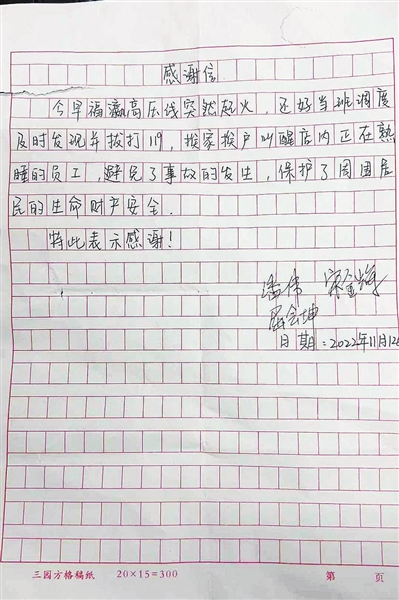 感谢信
今早福瀛高压线突然起火，还好当班调度
及时发现并拔打119，挨家挨户叫醒店内正在熟
睡的员工，避免了事故的发生，保护了周围居
民的生命财产安全．
特此表示感谢！
日期：2022年11月12
三园方格稿纸 20×15=300 第 页